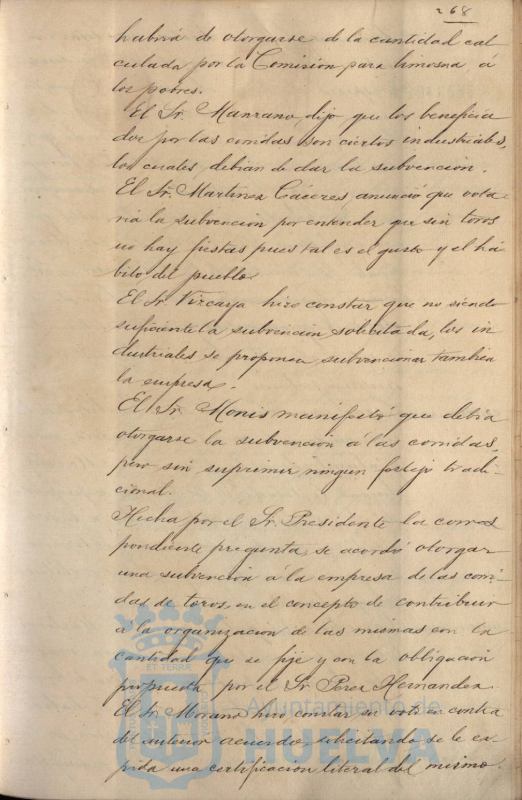 268
habrá de otorgarse de la cantidad cal
culada por la Comision para limosna á
los pobres.
El Sr. Manzano, dijo que los beneficia
dos por las corridas son ciertos industriales,
los cuales debian de dar la subvencion.
El Sr. Martinez Cáceres, anunció que vota
ria la subvencion por entender que sin toros
no hay fiestas pues tal es el gusto y el há
bito del pueblo.
El Sr. Vizcaya hizo constar que no siendo
suficiente la subvencion solicitada, los in
dustriales se proponen subvencionar tambien
la empresa.
El Sr. Monis manifestó que debia
otorgarse la subvencion á las corridas,
pero sin suprimir ningun festejo tradi-
cional.
Hecha por el Sr. Presidente la corres
pondiente pregunta, se acordó otorgar
una subvencion á la empresa de las corri
das de toros, en el concepto de contribuir
á la organizacion de las mismas con la
cantidad que se fije y con la obligacion
propuesta por el Sr. Perez Hernandez.
El Sr. Morano hizo constar su voto en contra
del anterior acuerdo, solicitando se le ex
pida una certificacion literal del mismo.
ET TERRÆ
Ayuntamiento de
HUELVA